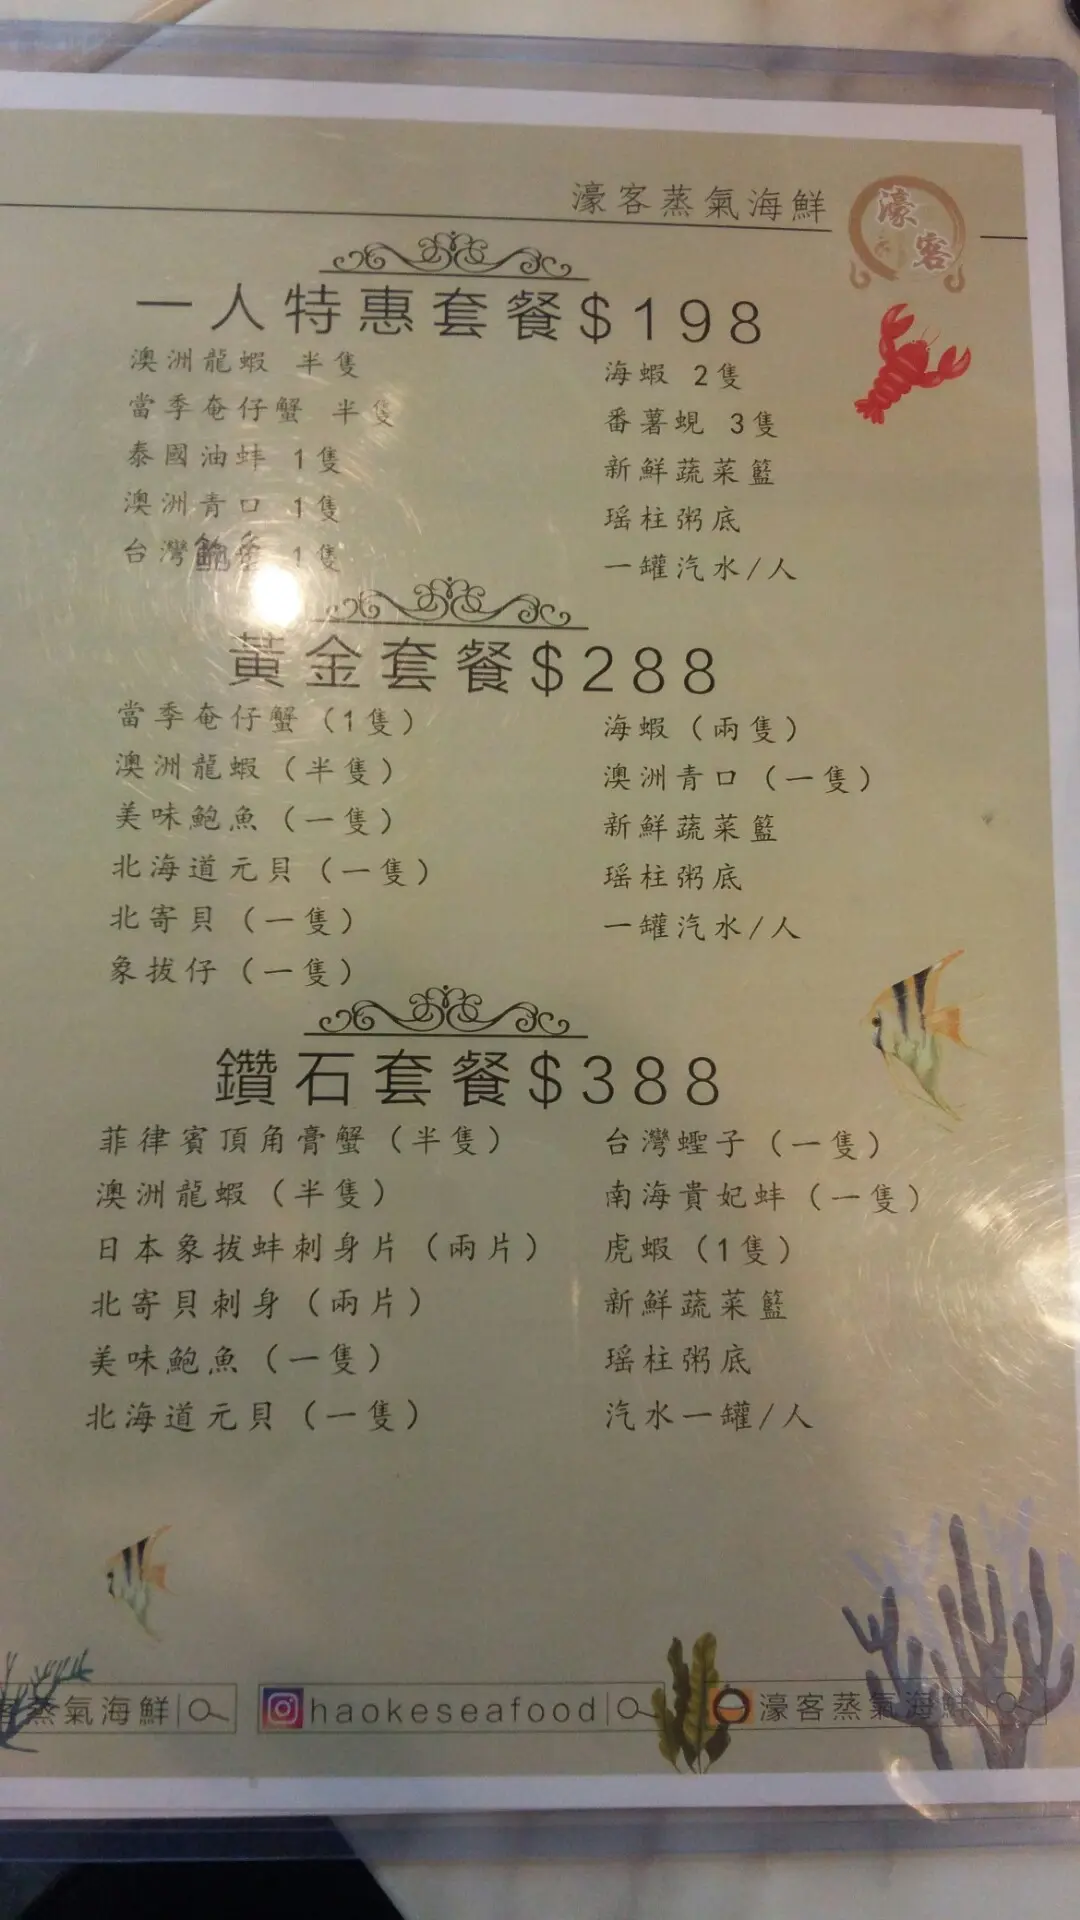 濠客蒸氣海鮮
濠客
一人特惠套餐$198
澳洲龍蝦 半隻
當季奄仔蟹 半隻
泰國油蚌 1隻
澳洲青口 1隻
台灣鮑魚 1隻
海蝦 2隻
番薯蜆 3隻
新鮮蔬菜籃
瑶柱粥底
一罐汽水/人
黃金套餐$288
當季奄仔蟹（1隻）
澳洲龍蝦（半隻）
美味鮑魚（一隻）
北海道元貝（一隻）
北寄貝（一隻）
象拔仔（一隻）
海蝦（兩隻）
澳洲青口（一隻）
新鮮蔬菜籃
瑶柱粥底
一罐汽水/人
鑽石套餐$388
菲律賓頂角膏蟹（半隻）
澳洲龍蝦（半隻）
日本象拔蚌刺身片（兩片）
北寄貝刺身（兩片）
美味鮑魚（一隻）
北海道元貝（一隻）
台灣蟶子（一隻）
南海貴妃蚌（一隻）
虎蝦（1隻）
新鮮蔬菜籃
瑶柱粥底
汽水一罐/人
客蒸氣海鮮
haokeseafood
濠客蒸氣海鮮